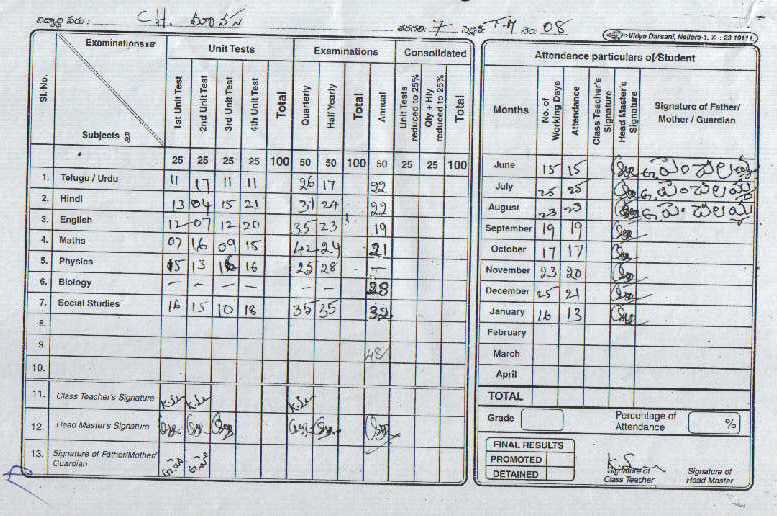 విద్యార్థి పేరు: CH.
తరగతి: 7 సెక్షన్ T.M నెం: 08
Vidya Darsani, Nellore-1,
Examinations Unit Tests Examinations Consolidated
Sl. No. Subjects 1st Unit Test 2nd Unit Test 3rd Unit Test 4th Unit Test Total Quarterly Half Yearly Total Annual Unit Tests reduced to 25% Qty + Hly reduced to 25% Total
25 25 25 25 100 50 50 100 50 25 25 100
1. Telugu / Urdu 11 17 11 11 26 17 22
2. Hindi 13 04 15 21 31 22
3. English 12 07 12 20 35 23 19
4. Maths 07 16 09 15 42 24 21
5. Physics 15 13 16 16 25 28 –
6. Biology – – – – – – 28
7. Social Studies 16 15 10 18 35 35 32
8.
9. 48
10.
11. Class Teacher's Signature
12 Head Master's Signature
13. Signature of Father/Mother/ Guardian
Attendance particulars of Student
Months No. of Working Days Attendance Class Teacher's Signature Head Master's Signature Signature of Father/ Mother / Guardian
June 15 15
July 25 25
August 23 23
September 19 19
October 17 17
November 23 20
December 25 21
January 16 13
February
March
April
TOTAL
Grade Percentage of Attendance %
FINAL RESULTS
PROMOTED
DETAINED
Signature of Class Teacher Signature of Head Master